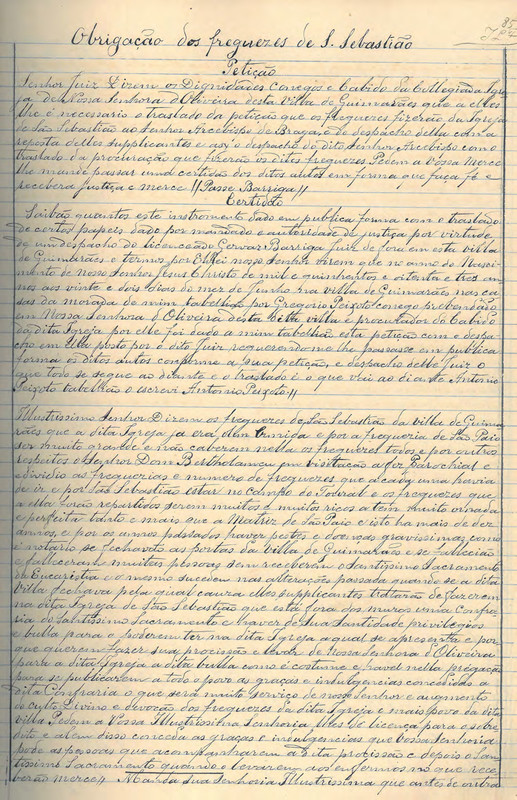 85
Obrigação dos freguezes de S. Sebastião
Petição
Senhor Juiz Dizem os Dignidades conegos e Cabido da Collegiada Igre
ja de Nossa Senhora d'Oliveira desta Villa de Guimarães que a elles
lhe é necessario o traslado da petição que os freguezes fizerão da Igreja
de São Sebastião ao Senhor Arcebispo de Braga e do despacho della com a
reposta delles Supplicantes e assy o despacho do dito Senhor Arcebispo com o
traslado da procuração que fizerão os ditos freguezes Pedem a Vossa Merce
lhe mande passar uma certidão dos ditos autos em forma que faça fé e
recebera justiça e merce // Passe Barriga //
Certidão
Saibão quantos este instromento dado em publica forma com o traslado
de certos papeis dado por mandado e autoridade de justiça por virtude
de um despacho do licenceado Gervaz Barriga Juiz de fora em esta villa
de Guimarães e termos por El Rei nosso Senhor virem que no anno do Nasci-
mento de nosso Senhor Jesus Christo de mil e quinhentos e oitenta e tres em
nos aos vinte e dois dias do mez de Junho na villa de Guimarães nas ca
sas da morada de mim tabellião por Gregorio Peixoto conego prebendado
em Nossa Senhora d'Oliveira desta villa e procurador do Cabido
da dita Igreja por elle foi dado a mim tabellião esta petição com o despa
cho em ella posto por o dito Juiz requerendo-me lhe passasse em publica
forma os ditos autos conforme a sua petição e despacho delle Juiz o
que todo se segue ao diante e o traslado é o que vai ao diante Antonio
Peixoto tabellião o escrevi Antonio Peixoto //
Illustrissimo Senhor Dizem os freguezes de São Sebastião da villa de Guima
rães que a dita Igreja já era d'em e por a freguezia de São Paio
ser muito grande e não caberem nella os freguezes todos e por outros
respeitos o Senhor Dom Bertholameu em visitação a fez Parochial e
a dividio as freguezias e numero de freguezes que a cada uma havia
de ir e por São Sebastião estar no campo do Toural e os freguezes que
a ella forão repartidos serem muitos e muitos ricos a tem muito ornada
e perfeita tanto e mais que a Matriz de São Paio e isto ha mais de dez
annos, e por os annos passados haver pestes e doenças gravissimas como
é notario se fecharão as portas da villa de Guimarães e se fallecião
e falleceram muitas pessoas sem receberem o Santissimo Sacramento
da Eucaristia e o mesmo sucedeu nas alterações passada quando se a dita
villa fechava pela qual cauza elles supplicantes tratarão de fazerem
na dita Igreja de São Sebastião que está fóra dos muros uma Confra
ria do Santissimo Sacramento e haver de sua Santidade privilegios
e bulla para o poderem ter na dita Igreja a qual se apresenta e por
que querem fazer sua procissão e levar de Nossa Senhora d'Oliveira
para a dita Igreja a dita bulla como é costume e haver nella pregação
para se publicarem a todo o povo as graças e indulgencias concedidas a
dita Confraria o que será muito serviço de nosso Senhor e augmento
do Culto Divino e devoção dos freguezes da dita Igreja e mais povo da dita
villa Pedem a Vossa Illustrissima Senhoria lhes dê licença para o sobre
dito e alem disso conceda as graças e indulgencias que Vossa Senhoria
pode as pessoas que acompanharem a dita procissão e depois o San
tissimo Sacramento quando o levarem aos enfermos no que rece
berão merce // Manda sua Senhoria Illustrissima que antes de outra